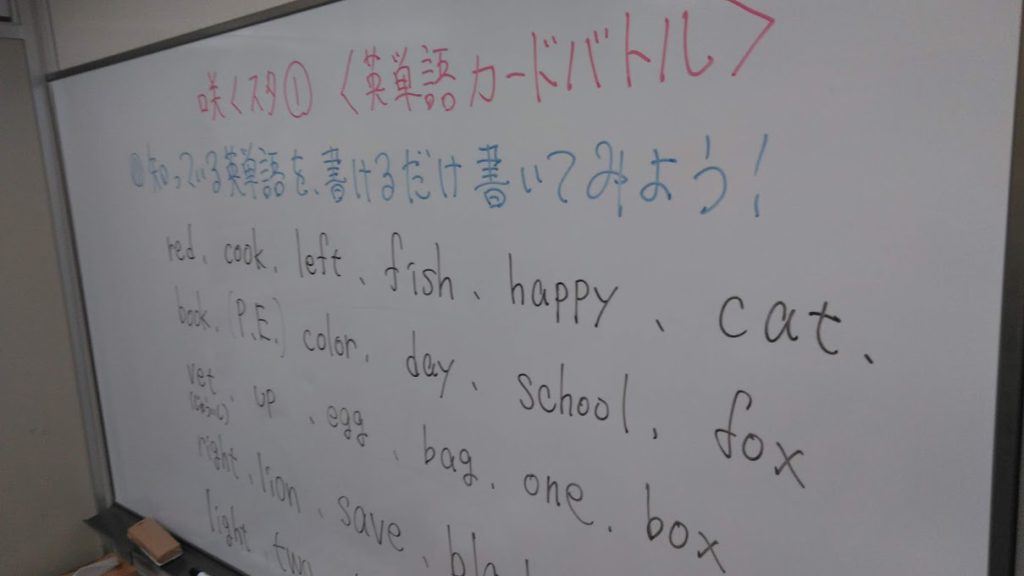 咲くスタ① 〈英単語カードバトル〉
知っている英単語を、書けるだけ書いてみよう!
red、cook、left、fish、happy、cat、
book、(P.E.) color、day、school、fox
vet、up、egg、bag、one、box
right、lion、save、
light、